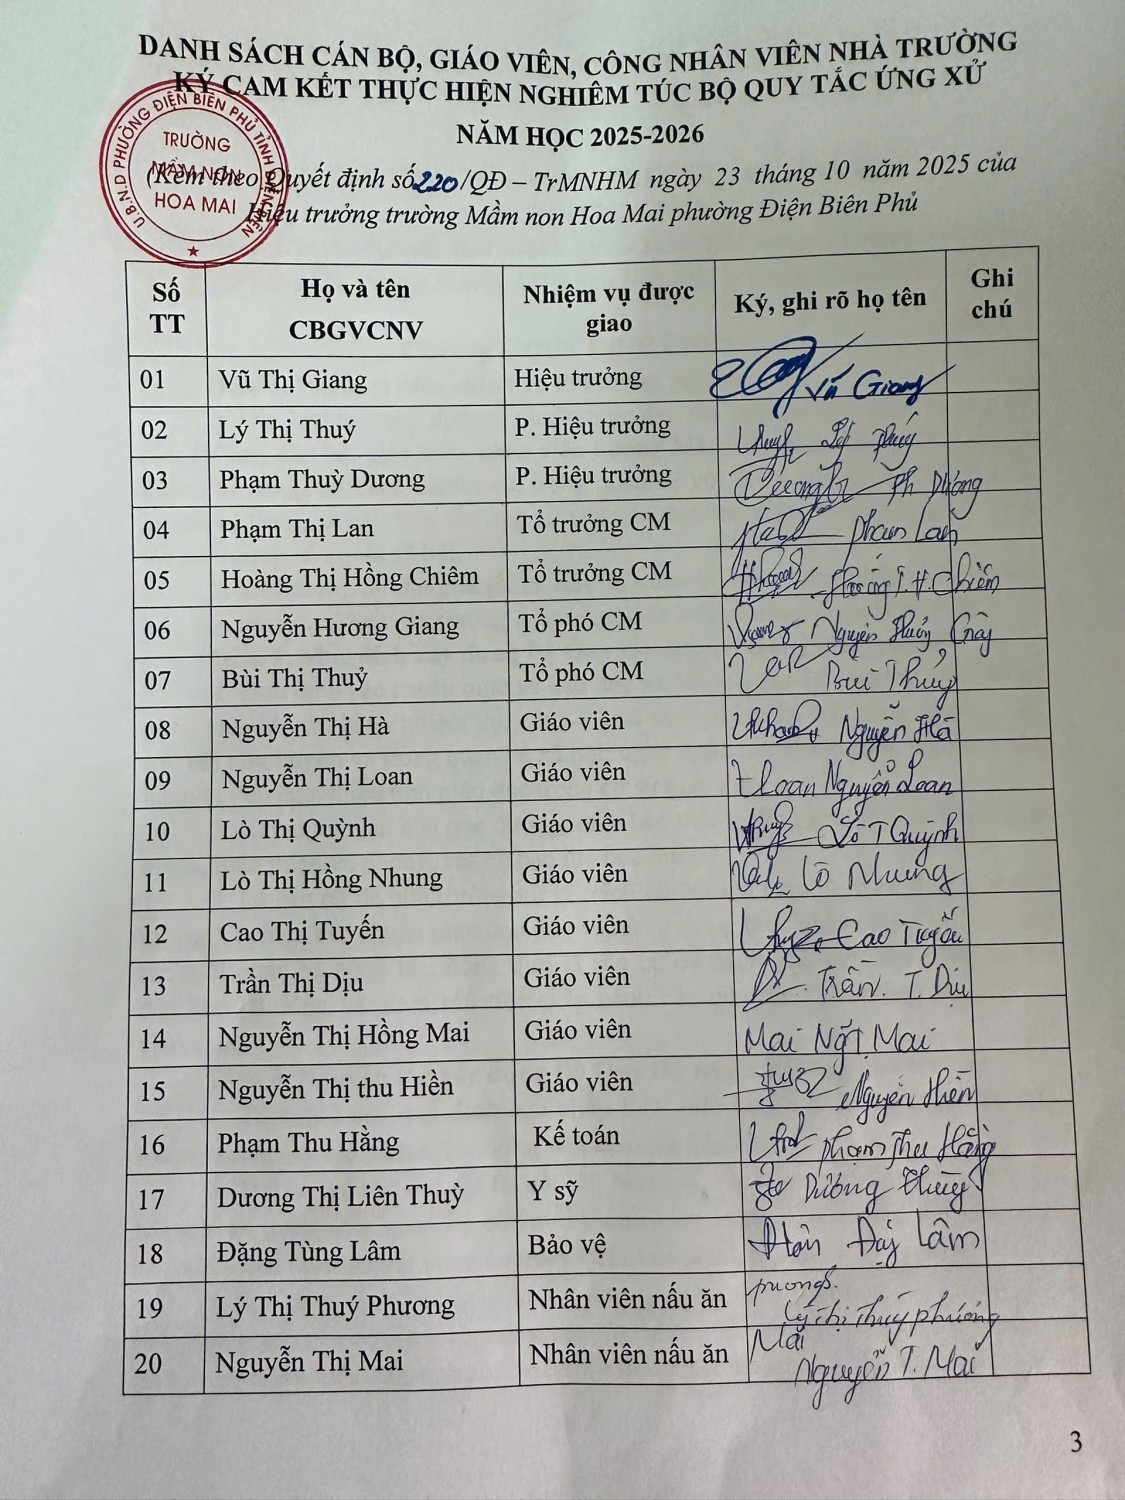 DANH SÁCH CÁN BỘ, GIÁO VIÊN, CÔNG NHÂN VIÊN NHÀ TRƯỜNG
KÝ CAM KẾT THỰC HIỆN NGHIÊM TÚC BỘ QUY TẮC ỨNG XỬ
NĂM HỌC 2025-2026
(Kèm theo Quyết định số 220/QĐ – TrMNHM ngày 23 tháng 10 năm 2025 của
Hiệu trưởng trường Mầm non Hoa Mai phường Điện Biên Phủ
U.B.N.D PHƯỜNG ĐIỆN BIÊN PHỦ TỈNH ĐIỆN BIÊN
TRƯỜNG
MẦM NON
HOA MAI
Số TT Họ và tên CBGVCNV Nhiệm vụ được giao Ký, ghi rõ họ tên Ghi chú
01 Vũ Thị Giang Hiệu trưởng Vũ Giang
02 Lý Thị Thuý P. Hiệu trưởng Lý Thuý
03 Phạm Thuỳ Dương P. Hiệu trưởng Ph Dương
04 Phạm Thị Lan Tổ trưởng CM Phạm Lan
05 Hoàng Thị Hồng Chiêm Tổ trưởng CM Hoàng T.H.Chiêm
06 Nguyễn Hương Giang Tổ phó CM Nguyễn Hương
07 Bùi Thị Thuỷ Tổ phó CM Bùi Thuỷ
08 Nguyễn Thị Hà Giáo viên Nguyễn Hà
09 Nguyễn Thị Loan Giáo viên Loan Nguyễn Loan
10 Lò Thị Quỳnh Giáo viên Lò T Quỳnh
11 Lò Thị Hồng Nhung Giáo viên Lò Nhung
12 Cao Thị Tuyến Giáo viên Cao Tuyến
13 Trần Thị Dịu Giáo viên Trần. T. Dịu
14 Nguyễn Thị Hồng Mai Giáo viên Mai Ng T. Mai
15 Nguyễn Thị thu Hiền Giáo viên Nguyễn Hiền
16 Phạm Thu Hằng Kế toán Phạm Thu Hằng
17 Dương Thị Liên Thuỳ Y sỹ Dương Thùy
18 Đặng Tùng Lâm Bảo vệ Lâm
19 Lý Thị Thuý Phương Nhân viên nấu ăn Phương Lý Thị Thuý Phương
20 Nguyễn Thị Mai Nhân viên nấu ăn Mai Nguyễn T. Mai
3